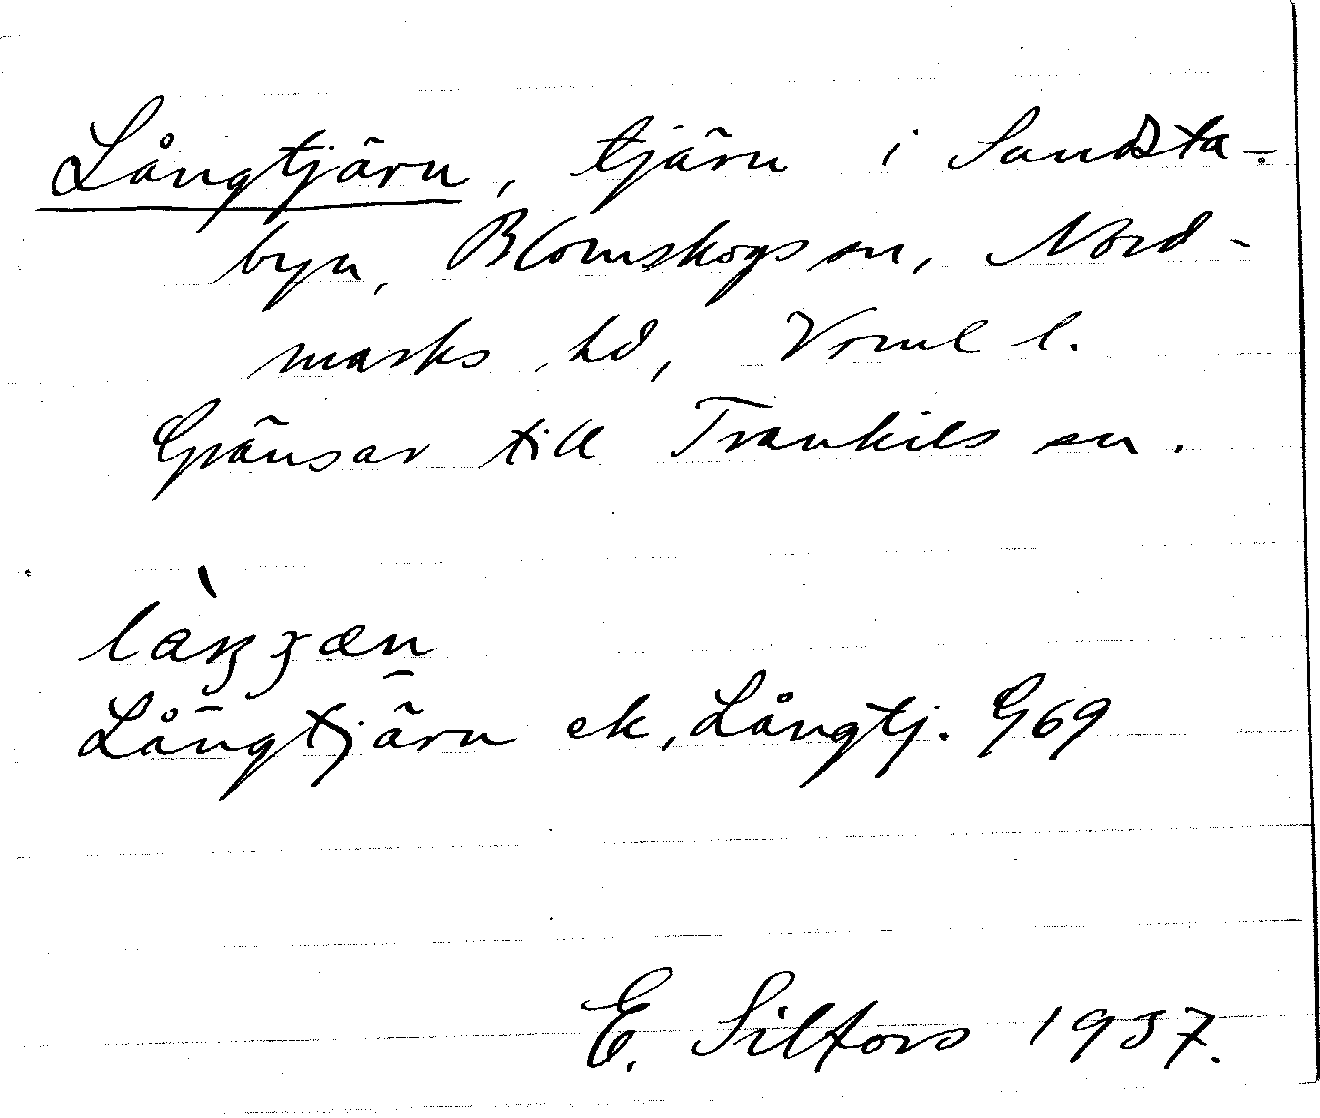 Långtjärn, tjärn i Sandsta-
byn, Blomskogs sn, Nord-
marks hd, Vrml l.
Gränsar till Trankils sn.
Långtjärn ek, Långtj. G69
E. Silfors 1937.